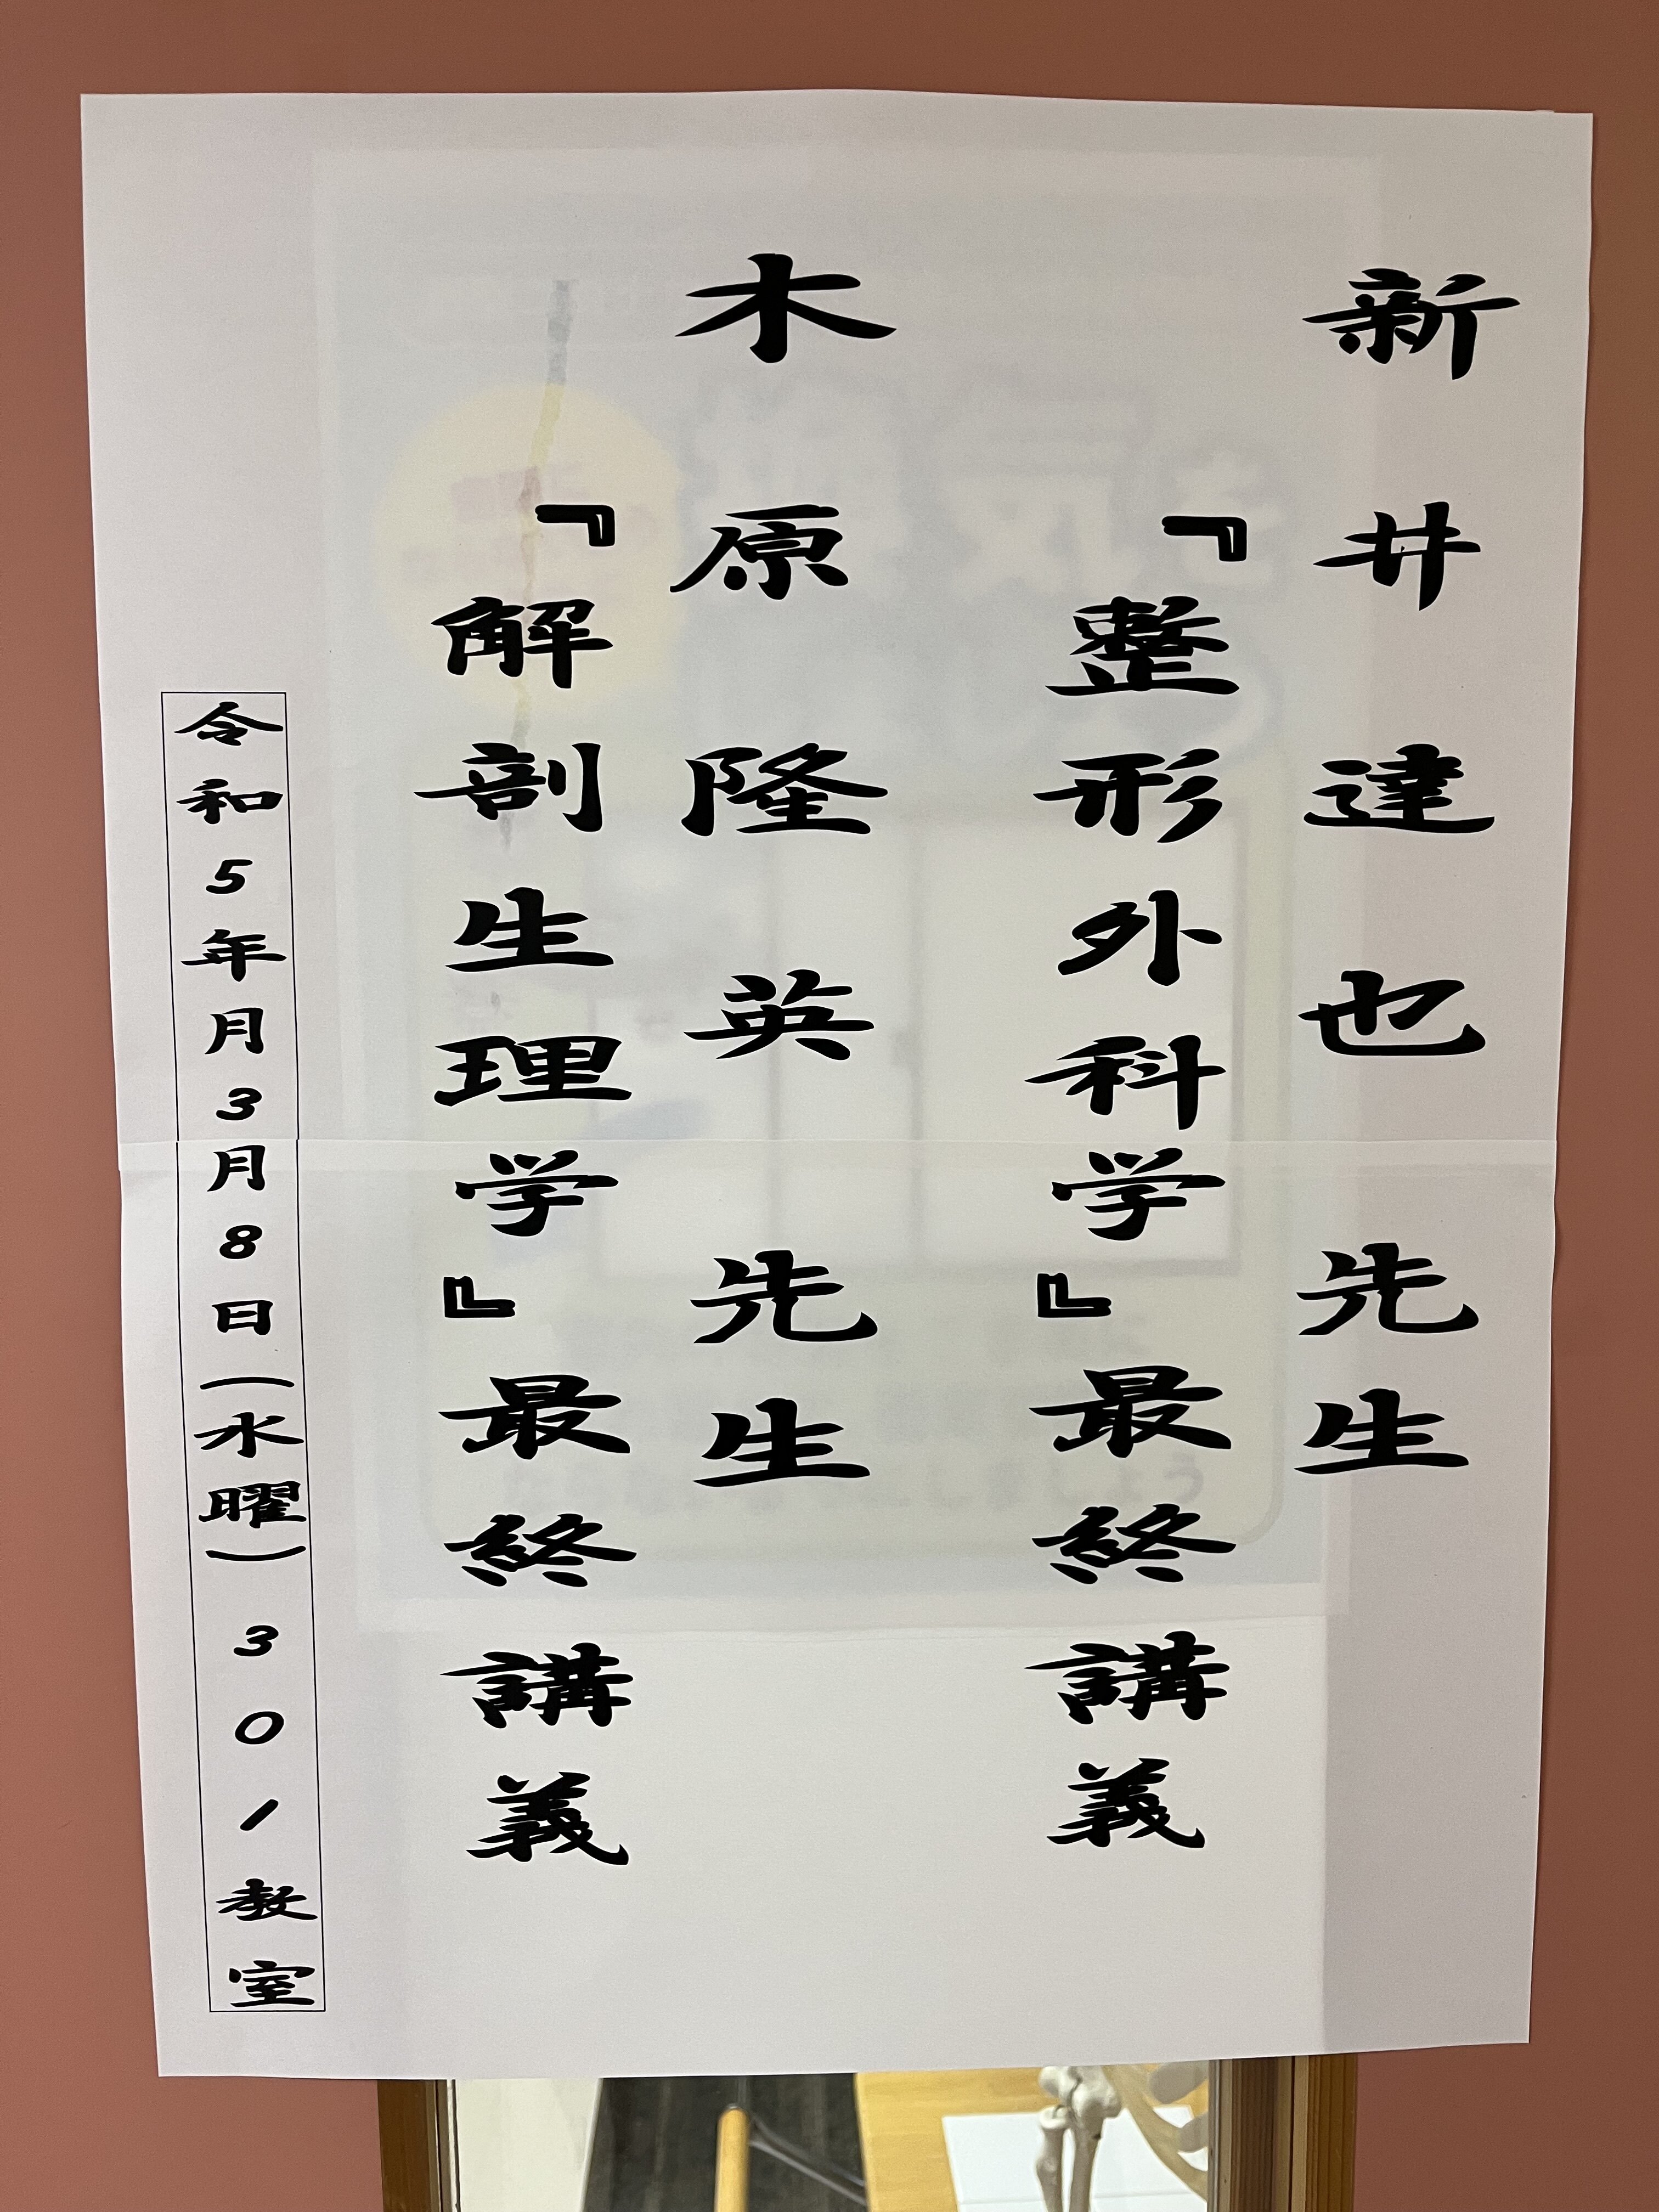 新井達也 先生
『整形外科学』最終講義
木原隆英 先生
『解剖生理学』最終講義
令和5年月3月8日(水曜) 301教室